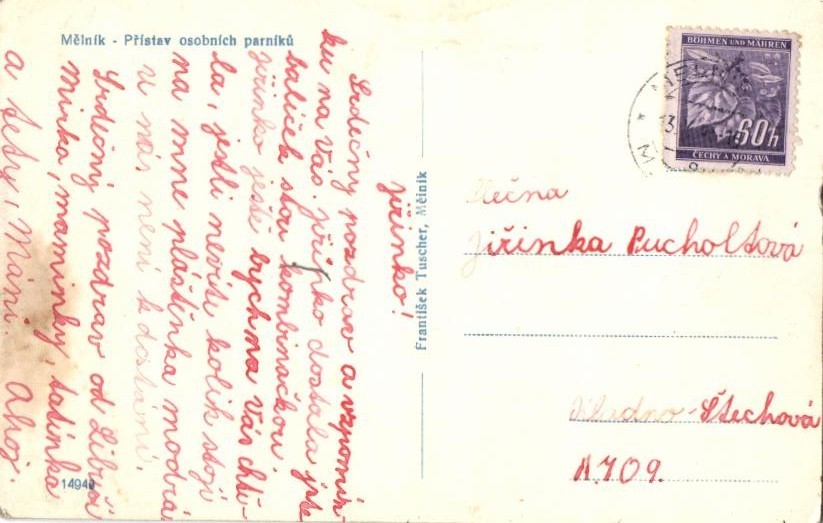 Mělník - Přístav osobních parníků
Jiřinko!
Srdečný pozdrav a vzpomín-
ku na Vás. Jiřinko dostala jste
balíček stou kombinačkou.
Jiřinko ještě bych na Vás chtě-
la, jestli nevíte kolik stojí
na mne pláštěnka modrá
u nás není k dostání.
Srdečný pozdrav od Libuši
Mirka, maminky, tatínka
a tety, Máni. Ahoj.
14940
František Tuscher, Mělník
BÖHMEN UND MÄHREN
60h
ČECHY A MORAVA
Slečna
Jiřinka Pucholtová
Kladno-Štechová
A709.